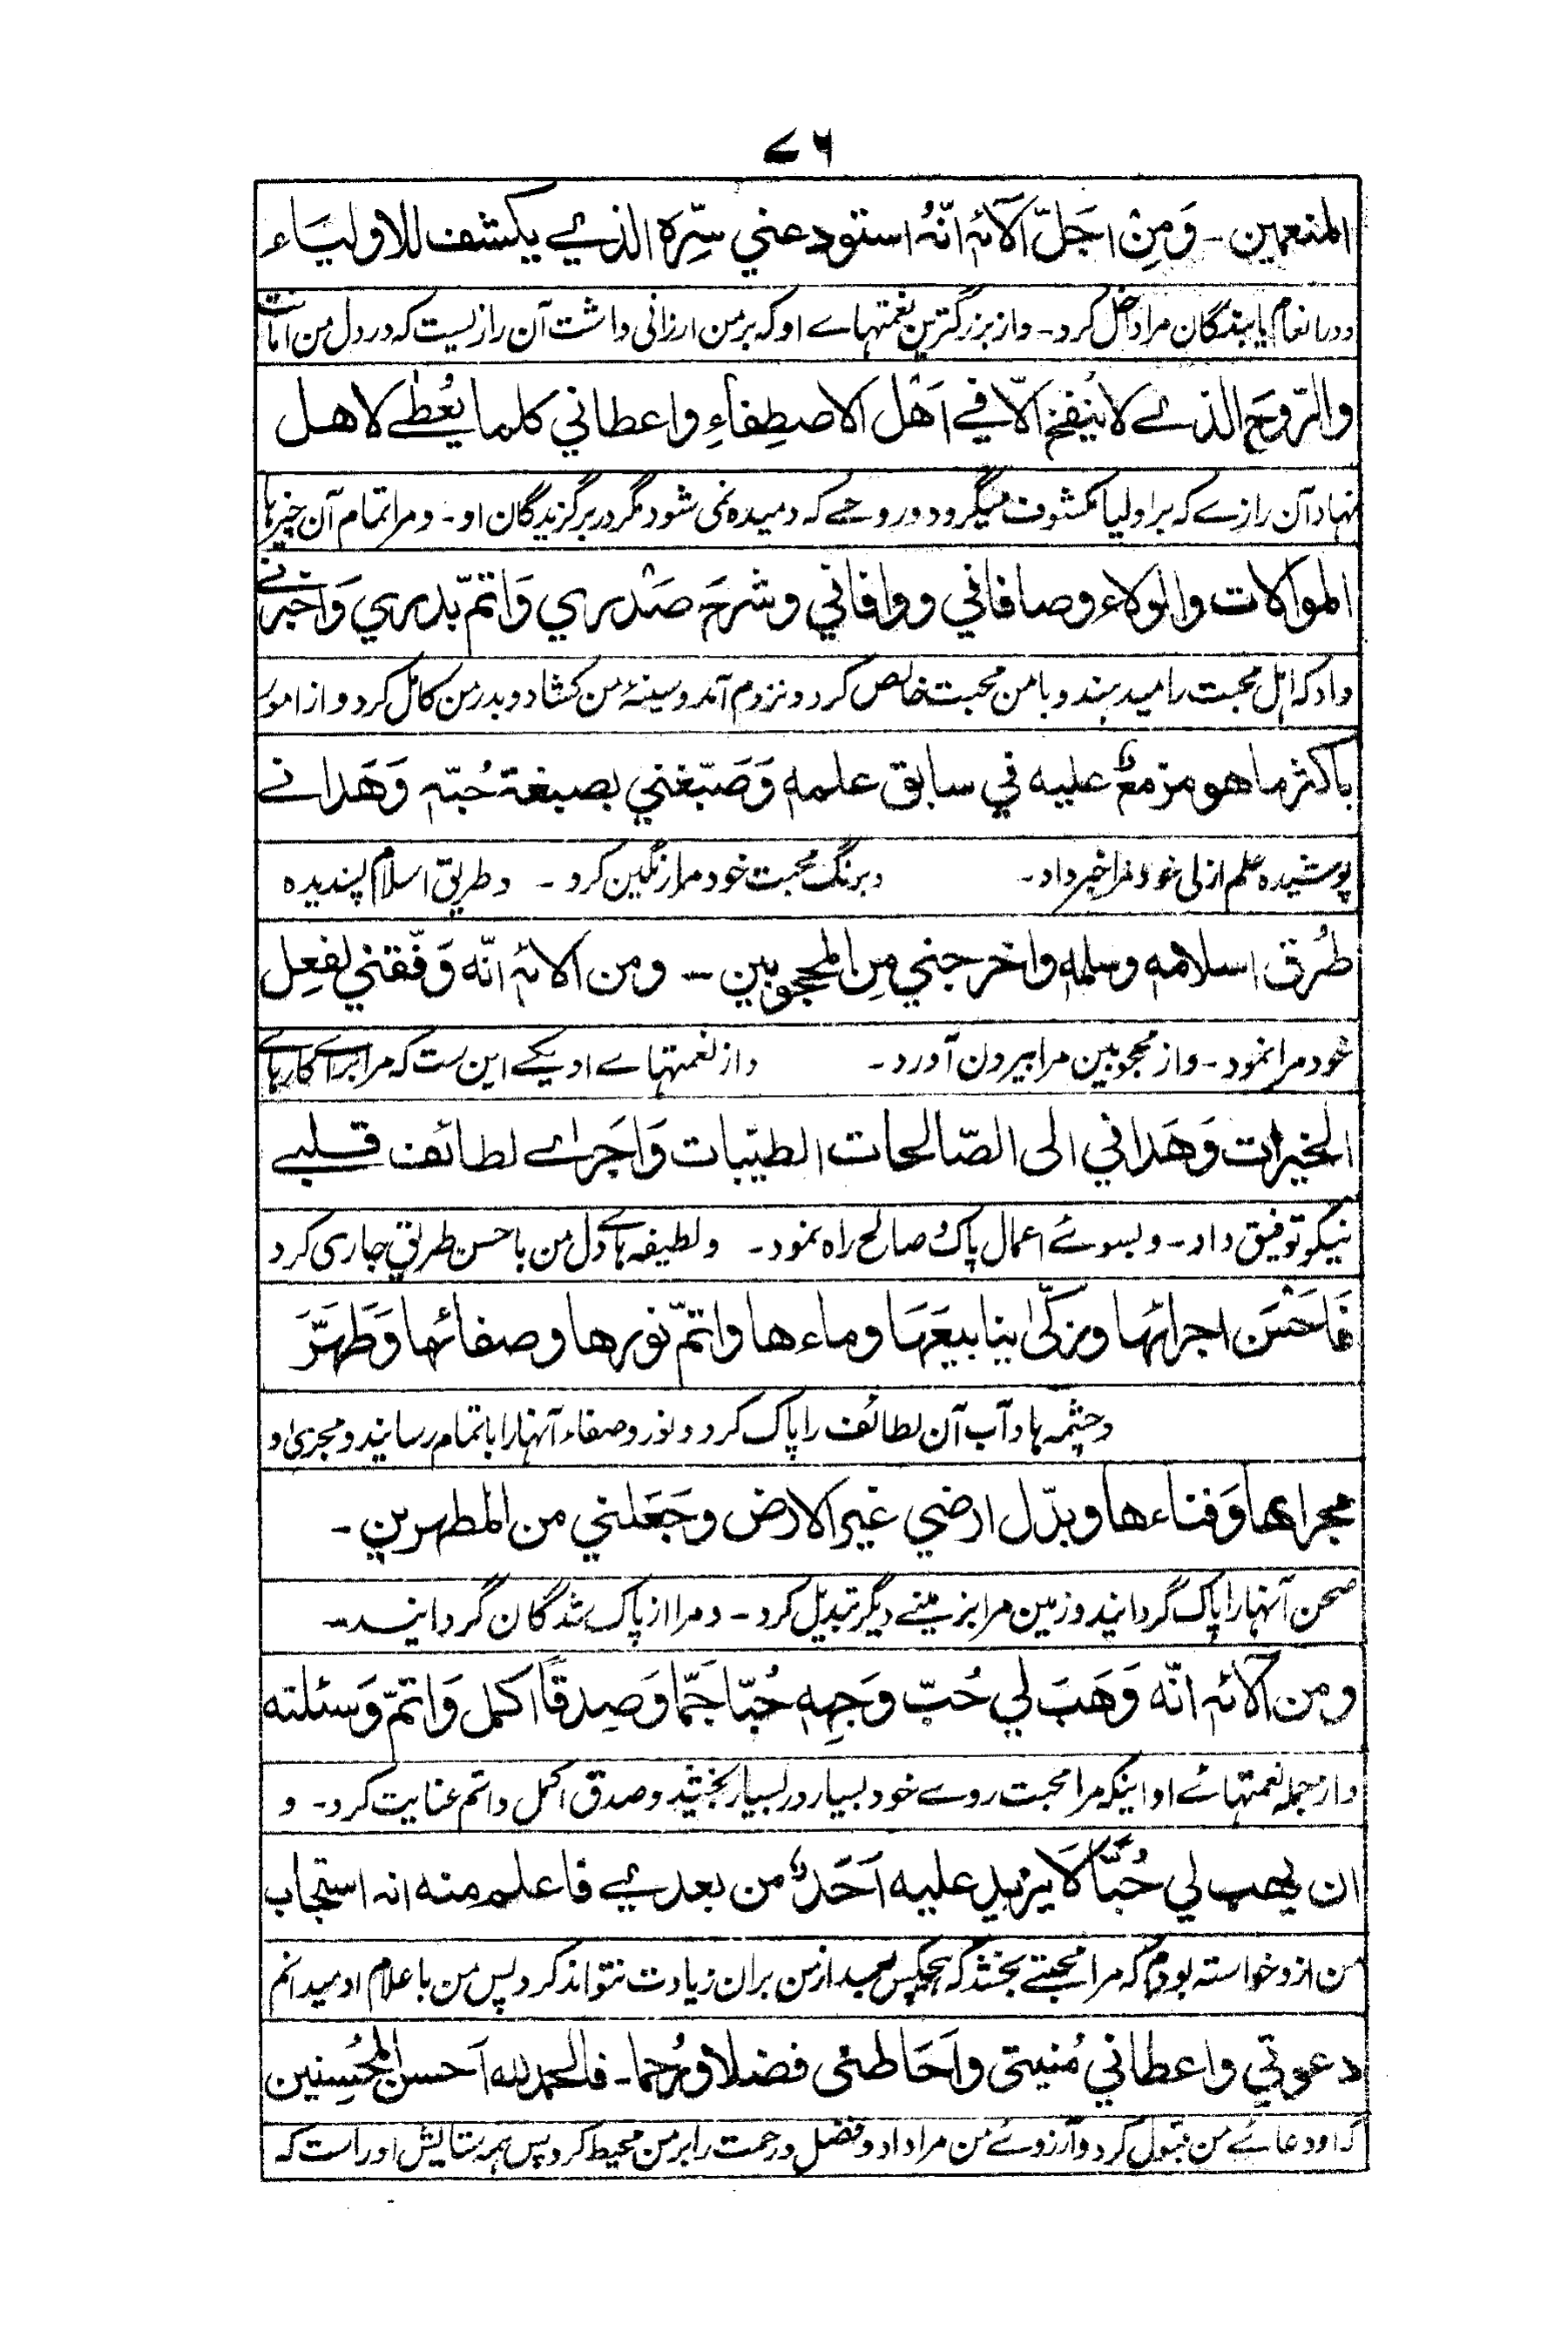 ۷۶
المنعمين ـ وَمِنْ اجَلّ آلائہ انّہُ استودعني سِّرہ الذي يكشف للاولياء
ودر انعام یابندگان مرا داخل کرد ـ واز بزرگترین نعمتہاے او کہ بر من ارزانی داشت آن رازیست کہ در دل من امانت
والرّوحَ الذي لا يُنفخ الّا في اَهْل الاصطِفاءِ واعطاني كلما يُعطٰى لاهل
نہاد آن رازے کہ بر اولیا مکشوف میگردد و روحے کہ دمیدہ نمی شود مگر در برگزیدگان او ـ و مرا تمام آن چیزہا
الموالات والولاء وصافاني ووافاني وشرحَ صَدْري وَاتمّ بدري وَاخبرني
داد کہ اہل محبت را میدہند و با من محبت خالص کرد و نزدم آمد و سینۂ من کشاد و بدر من کامل کرد و از امور
باكثر ما هو مزمعٌ عليه في سابق علمه وَصَبّغني بصبغة حُبّه وَهَداني
پوشیدہ علم ازلی خود مرا خبر داد ـ و برنگ محبت خود مرا رنگین کرد ـ و طریق اسلام پسندیدہ
طُرق اسلامه وسلمه واخرجني مِن المحجوبين ـ ومن آلائہ انّه وَفّقني لفعِل
خود مرا نمود ـ و از محجوبین مرا بیرون آورد ـ و از نعمتہاے او یکے این ست کہ مرا براے کارہاے
الخيرات وَهَداني الى الصّالحات الطيّبات وَاَجَرٰى لطائف قلبي
نیکو توفیق داد ـ و بسوئے اعمال پاک و صالح راہ نمود ـ و لطیفہ ہاے دل من باحسن طریق جاری کرد
فَاَحْسَن اجرائها وزكّٰى ينابيعَهَا وماءها واتمّ نورها وصفائها وَطَهّرَ
و چشمہ ہا و آب آن لطائف را پاک کرد و نور و صفاء آنہا را باتمام رسانید و مجری و
مجراها وَفناءها وبدّل ارضي غير الارض وجَعَلني من المطهرين ـ
صحن آنہا را پاک گردانید و زمین مرا بزمینے دیگر تبدیل کرد ـ و مرا از پاک شدگان گردانید ـ
ومن آلائہ انّه وَهَبَ لي حُبّ وَجِههٖ حُبّا جَمّا وَصِدقًا اكمل وَاتمّ وَسئلته
و از جملہ نعمتہائے او اینکہ مرا محبت روے خود بسیار در بسیار بخشید و صدق اکمل و اتم عنایت کرد ـ و
ان يهب لي حُبًّا لَا يزيد عليه اَحَدٌ من بعدي فاعلم منه انہ استجاب
من ازو خواستہ بودم کہ مرا محبتے بخشد کہ ہیچکس بعد از من بران زیادت نتواند کرد پس من باعلام او میدانم
دعوتي واعطاني مُنيتى وَاَحَاطنى فضلا ورُحما ـ فالحمد لله اَحسن المُحسِنين
کہ او دعائے من قبول کرد و آرزوئے من مرا داد و فضل و رحمت را بر من محیط کرد پس ہمہ ستایش او راست کہ